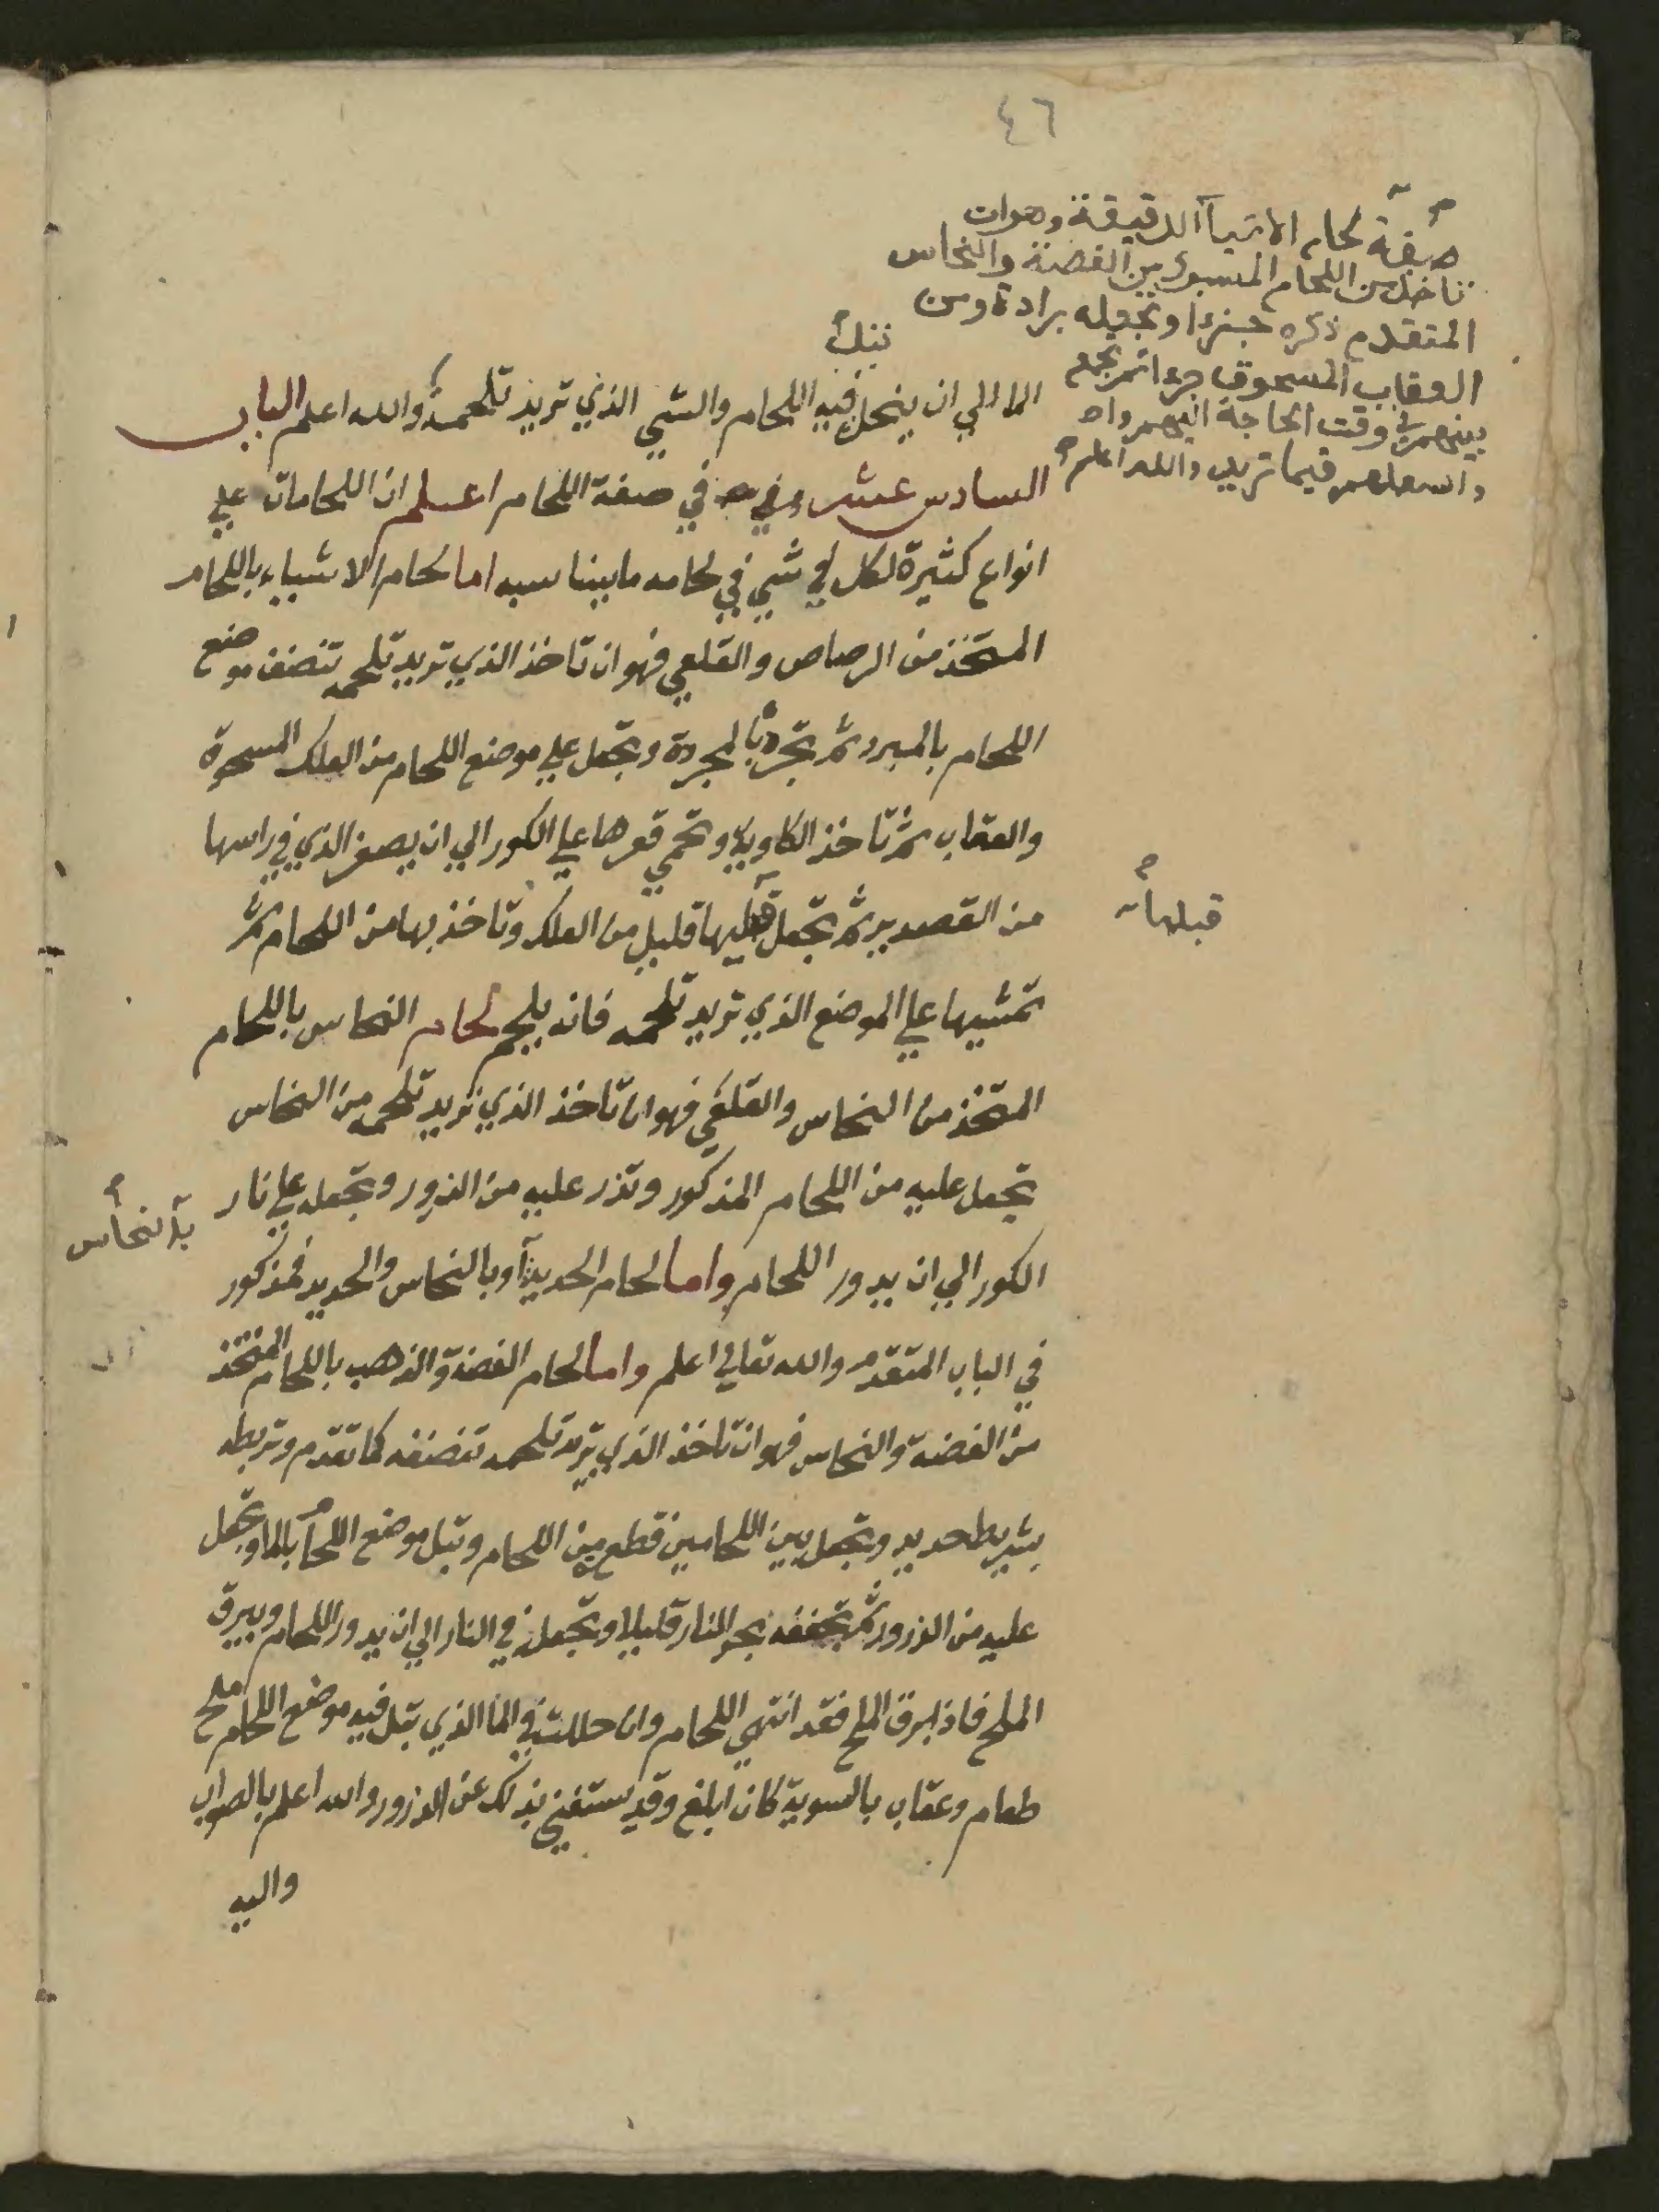 ٤٦
صفة لحام الاشيآ الدقيقة وهو ان
تاخذ من اللحام المسبوك بين الفضة والنحاس
المتقدم ذكره جزءا وتجعله برادة ومن
العقاب المسحوق جزءا ثم تجمع
بينهم في وقت الحاجة اليهم
فيما تريد والله اعلم
الما الي ان ينحل فيه اللحام والشي الذي تريد تلحمه والله اعلم الباب
السادس عشر في صفة اللحام اعلم ان اللحامات علي
انواع كثيرة لكل شي في لحامه ما يناسبه اما لحام الاشياء باللحام
المتخذ من الرصاص والقلعي فهو ان تاخذ الذي تريد تلحمه تنضف موضع
اللحام بالمبرد ثم تجرد بالمجردة وتجعل علي موضع اللحام من العلك
والعقاب ثم تاخذ الكاوية وتحمي قعرها علي الكور الي ان الذي في راسها
من القصدير ثم تجعل قليل من العلك وتاخذ بها من اللحام ثم
قبلها
تمشيها علي الموضع الذي تريد تلحمه فانه يلحم لحام النحاس باللحام
المتخذ من النحاس والقلعي فهو ان تاخذ الذي تريد تلحمه من النحاس
تجعل عليه من اللحام المذكور وتذر عليه من الذرور وتجعله علي نار
بالنحاس
الكور الي ان يدور اللحام واما لحام الحديد او بالنحاس والحديد فمذكور
في الباب المتقدم والله تعالي اعلم واما لحام الفضة والذهب باللحام المتخذ
من الفضة والنحاس فهو ان تاخذ الذي تريد تلحمه تنضفه كما تقدم وتربطه
بشريط حديد وتجعل بين اللحامين قطع من اللحام وتبل موضع اللحام بالما وتجعل
عليه من الذرور ثم تجففه بحر النار قليلا وتجعله في النار الي ان يدور اللحام ويبرق
الملح فاذا برق الملح فقد انتهي اللحام وان حللت في الما الذي تبل فيه موضع اللحام ملح
طعام وعقاب بالسوية كان ابلغ وقد يستغني بذلك عن الذرور والله اعلم بالصواب
واليه